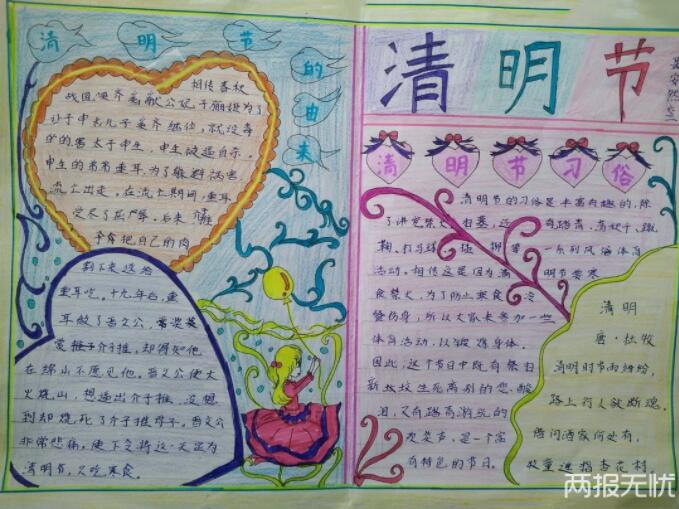 清明节的由来
相传春秋
战国,晋齐姜献公妃子丽姬为了
让子申去儿子奚齐继位,就设毒
的害太子申生,申生被逼自杀.
申生的弟弟重耳,为了躲避祸害
流亡出走.在流亡期间,重耳
受尽了屈辱.后来介推
令肯把自己的肉
割下来送给
重耳吃.十九年后,重
耳做了晋文公,
介子推,却得知他
在绵山不愿见他.晋文公便火
火烧山,想逼出介子推,没想
到却烧死了介子推母子.晋文公
非常悲痛,便下令将这一天定为
清明节,又吃寒食.
清明节
清明节习俗
清明节的习俗是丰富有趣的,除
了讲究禁火、扫墓,还有踏青、荡秋千、蹴
鞠、打马球、插柳等一系列风俗体育
活动.相传这是因为清明节要寒
食禁火,为了防止寒食冷
餐伤身,所以大家来参加一些
体育活动,以锻炼身体.
因此,这个节日中既有祭扫
新坟坟生死离别的悲酸
泪,又有踏青游玩的
欢笑声,是一个富
有特色的节日.
清明
唐·杜牧
清明时节雨纷纷,
路上行人欲断魂.
借问酒家何处有,
牧童遥指杏花村.
两报无忧